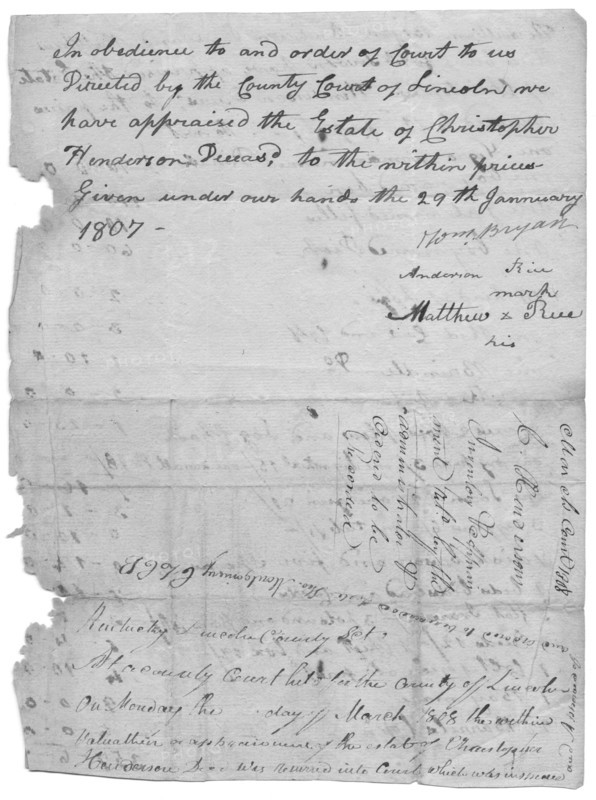 In obedience to and order of Court to us
Directed by the County Court of Lincoln we
have appraised the Estate of Christopher
Henderson Deceasd, to the within prices
Given under our hands the 29th Jannuary
1807 -
Wm. Bryan
Anderson Rice
mark
Matthew x Rice
his
March Court 1808
C. Henderson
administrator &
Ordered to be
Recorded
Kentucky Lincoln County Sct.
At a county Court held for the County of Lincoln
On Monday the day of March 1808 the within
Valuation or appraisement of the estate of Christopher
Henderson Decd. was returned into Court, which was
and ordered to be recorded
Montgomery